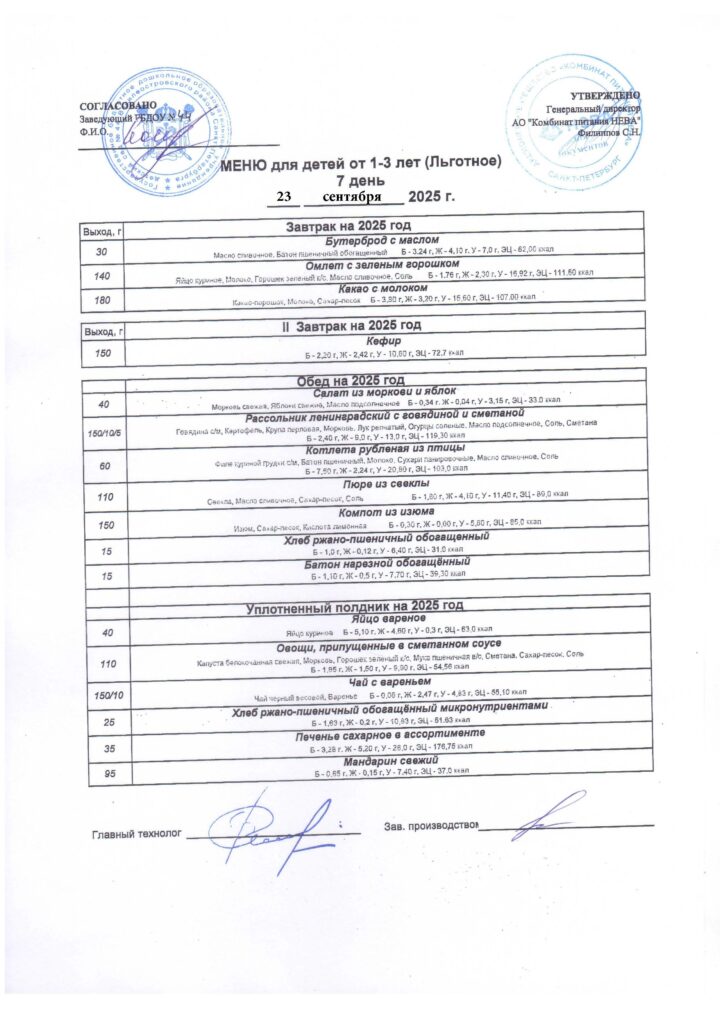 СОГЛАСОВАНО
Заведующий ГБДОУ № 44
Ф.И.О.
УТВЕРЖДЕНО
Генеральный директор
АО "Комбинат питания НЕВА"
Филиппов С.Н.
МЕНЮ для детей от 1-3 лет (Льготное)
7 день
23 сентября 2025 г.
Выход, г Завтрак на 2025 год
Бутерброд с маслом
30 Масло сливочное, Батон пшеничный обогащенный Б - 3,24 г, Ж - 4,10 г, У - 7,0 г, ЭЦ - 62,00 ккал
Омлет с зеленым горошком
140 Яйцо куриное, Молоко, Горошек зеленый к/с, Масло сливочное, Соль Б - 1,76 г, Ж - 2,30 г, У - 16,92 г, ЭЦ - 111,60 ккал
Какао с молоком
180 Какао-порошок, Молоко, Сахар-песок Б - 3,80 г, Ж - 3,20 г, У - 15,60 г, ЭЦ - 107,00 ккал
Выход, г II Завтрак на 2025 год
Кефир
150 Б - 2,20 г, Ж - 2,42 г, У - 10,60 г, ЭЦ - 72,7 ккал
Обед на 2025 год
Салат из моркови и яблок
40 Морковь свежая, Яблоки свежие, Масло подсолнечное Б - 0,34 г, Ж - 0,04 г, У - 3,15 г, ЭЦ - 33,0 ккал
Рассольник ленинградский с говядиной и сметаной
150/10/5 Говядина с/м, Картофель, Крупа перловая, Морковь, Лук репчатый, Огурцы соленые, Масло подсолнечное, Соль, Сметана
Б - 2,40 г, Ж - 9,0 г, У - 13,0 г, ЭЦ - 119,30 ккал
Котлета рубленая из птицы
60 Филе куриной грудки с/м, Батон пшеничный, Молоко, Сухари панировочные, Масло сливочное, Соль
Б - 7,50 г, Ж - 2,24 г, У - 20,60 г, ЭЦ - 103,0 ккал
Пюре из свеклы
110 Свекла, Масло сливочное, Сахар-песок, Соль Б - 1,60 г, Ж - 4,10 г, У - 11,40 г, ЭЦ - 89,0 ккал
Компот из изюма
150 Изюм, Сахар-песок, Кислота лимонная Б - 0,30 г, Ж - 0,00 г, У - 5,60 г, ЭЦ - 65,0 ккал
Хлеб ржано-пшеничный обогащенный
15 Б - 1,0 г, Ж - 0,12 г, У - 6,40 г, ЭЦ - 31,0 ккал
Батон нарезной обогащённый
15 Б - 1,10 г, Ж - 0,5 г, У - 7,70 г, ЭЦ - 39,30 ккал
Уплотненный полдник на 2025 год
Яйцо вареное
40 Яйцо куриное Б - 5,10 г, Ж - 4,60 г, У - 0,3 г, ЭЦ - 63,0 ккал
Овощи, припущенные в сметанном соусе
110 Капуста белокочанная свежая, Морковь, Горошек зеленый к/с, Мука пшеничная в/с, Сметана, Сахар-песок, Соль
Б - 1,95 г, Ж - 1,50 г, У - 9,90 г, ЭЦ - 54,56 ккал
Чай с вареньем
150/10 Чай черный весовой, Варенье Б - 0,06 г, Ж - 2,47 г, У - 4,83 г, ЭЦ - 55,10 ккал
Хлеб ржано-пшеничный обогащённый микронутриентами
25 Б - 1,63 г, Ж - 0,2 г, У - 10,63 г, ЭЦ - 51,63 ккал
Печенье сахарное в ассортименте
35 Б - 3,28 г, Ж - 5,20 г, У - 26,0 г, ЭЦ - 176,75 ккал
Мандарин свежий
95 Б - 0,65 г, Ж - 0,15 г, У - 7,40 г, ЭЦ - 37,0 ккал
Главный технолог
Зав. производством